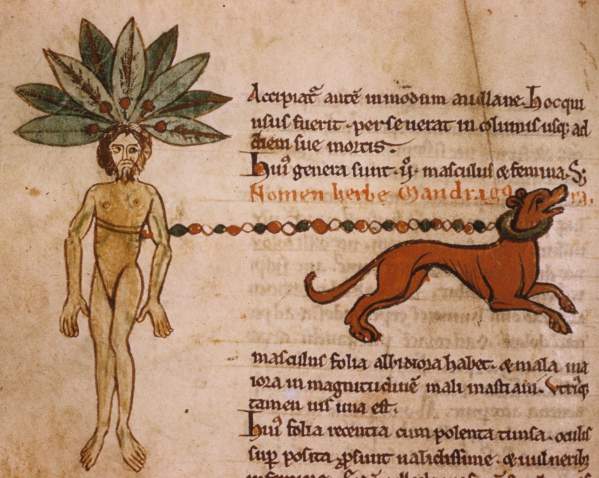 Accipiat᷑ aute̅ in modum auellane. hoc qui
usus fuerit. per seuerat in columis usq; ad
diem sue mortis.
Huiꝰ genera sunt .ij. masculus & femina. S;
Nomen herbe Mandragora.
masculus folia albidiora habet. & mala ma
iora in magnitudine̅ mali matiani. Utriꝰq;
tamen uis una est.
Huiꝰ folia recentia cum polenta tunsa. oculis
sup̲ posita p̲sunt ualidissime. & uulnerib;